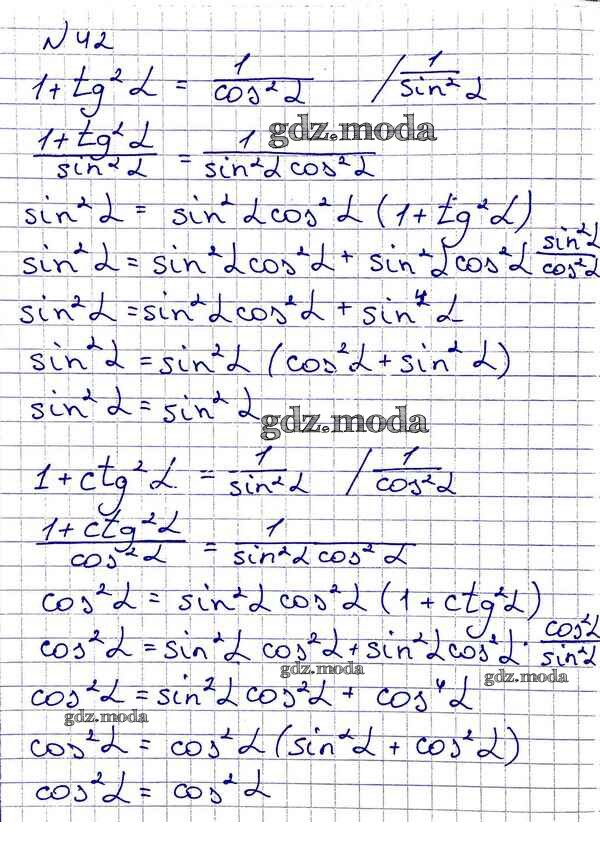 N 42
1 + tg² α = 1/cos² α / 1/sin² α
gdz.moda
(1 + tg² α)/sin² α = 1/(sin² α cos² α)
sin² α = sin² α cos² α (1 + tg² α)
sin² α = sin² α cos² α + sin² α cos² α sin² α/cos² α
sin² α = sin² α cos² α + sin⁴ α
sin² α = sin² α (cos² α + sin² α)
sin² α = sin² α
gdz.moda
1 + ctg² α = 1/sin² α / 1/cos² α
(1 + ctg² α)/cos² α = 1/(sin² α cos² α)
cos² α = sin² α cos² α (1 + ctg² α)
cos² α = sin² α cos² α + sin² α cos² α · cos² α/sin² α
gdz.moda
gdz.moda
cos² α = sin² α cos² α + cos⁴ α
gdz.moda
cos² α = cos² α (sin² α + cos² α)
cos² α = cos² α